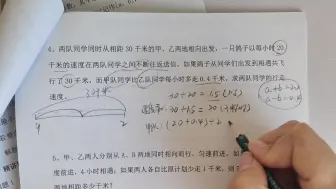 4、两队同学同时从相距 30 千米的甲、乙两地相向出发，一只鸽子以每小时 20
千米的速度在两队同学之间不断往返送信。如果鸽子从同学们出发到相遇共飞
行了 30 千米，而甲队同学比乙队同学每小时多走 0.4 千米，求两队同学的行走
速度。
30÷20=1.5(小时)
30÷1.5=20(千米/时)
(20+0.4)÷2
甲
乙
a+b=20
a-b=0.4
5、甲、乙两人分别从 A、B 两地同时相向而行，匀速前进。如果
度前进，4 小时相遇；如果两人各自比原计划少走 1 千米，则
两地相距多少千米？